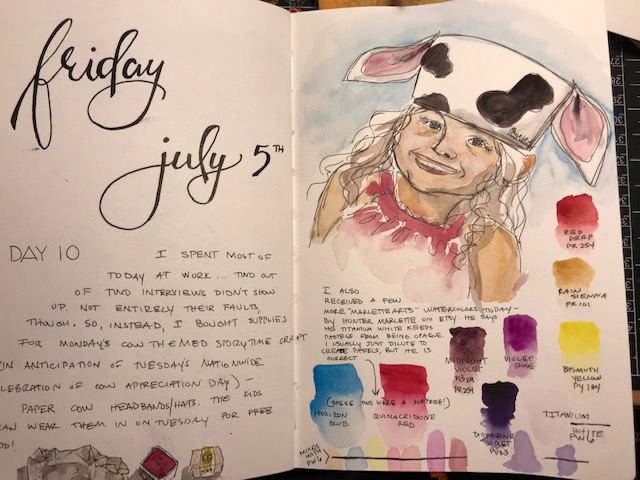 friday
july 5TH
DAY 10
I SPENT MOST OF
TODAY AT WORK... TWO OUT
OF TWO INTERVIEWS DIDN'T SHOW
UP. NOT ENTIRELY THEIR FAULT,
THOUGH. SO, INSTEAD, I BOUGHT SUPPLIES
FOR MONDAY'S COW THEMED STORYTIME CRAFT
(IN ANTICIPATION OF TUESDAY'S NATIONWIDE
CELEBRATION OF COW APPRECIATION DAY) -
PAPER COW HEADBANDS/HATS. THE KIDS
CAN WEAR THEM IN ON TUESDAY FOR FREE
I ALSO
RECEIVED A FEW
MORE "MARLETTE ARTS" WATERCOLORS TODAY -
BY HUNTER MARLETTE ON ETSY. HE SAYS
HIS TITANIUM WHITE KEEPS
PASTELS FROM BEING OPAQUE.
I USUALLY JUST DILUTE TO
CREATE PASTELS, BUT HE IS
CORRECT
(THESE TWO WERE A SURPRISE!)
HORIZON
BLUE
QUINACRIDONE
RED
MIDNIGHT
VIOLET
PB29
PR254
VIOLET
ROSE
DIOXAZINE
VIOLET
PV23
RED
DERP
PR254
RAW
SIENNA
PR101
BISMUTH
YELLOW
PY184
TITANIUM
WHITE
PW6
MIXES
WITH
PW6